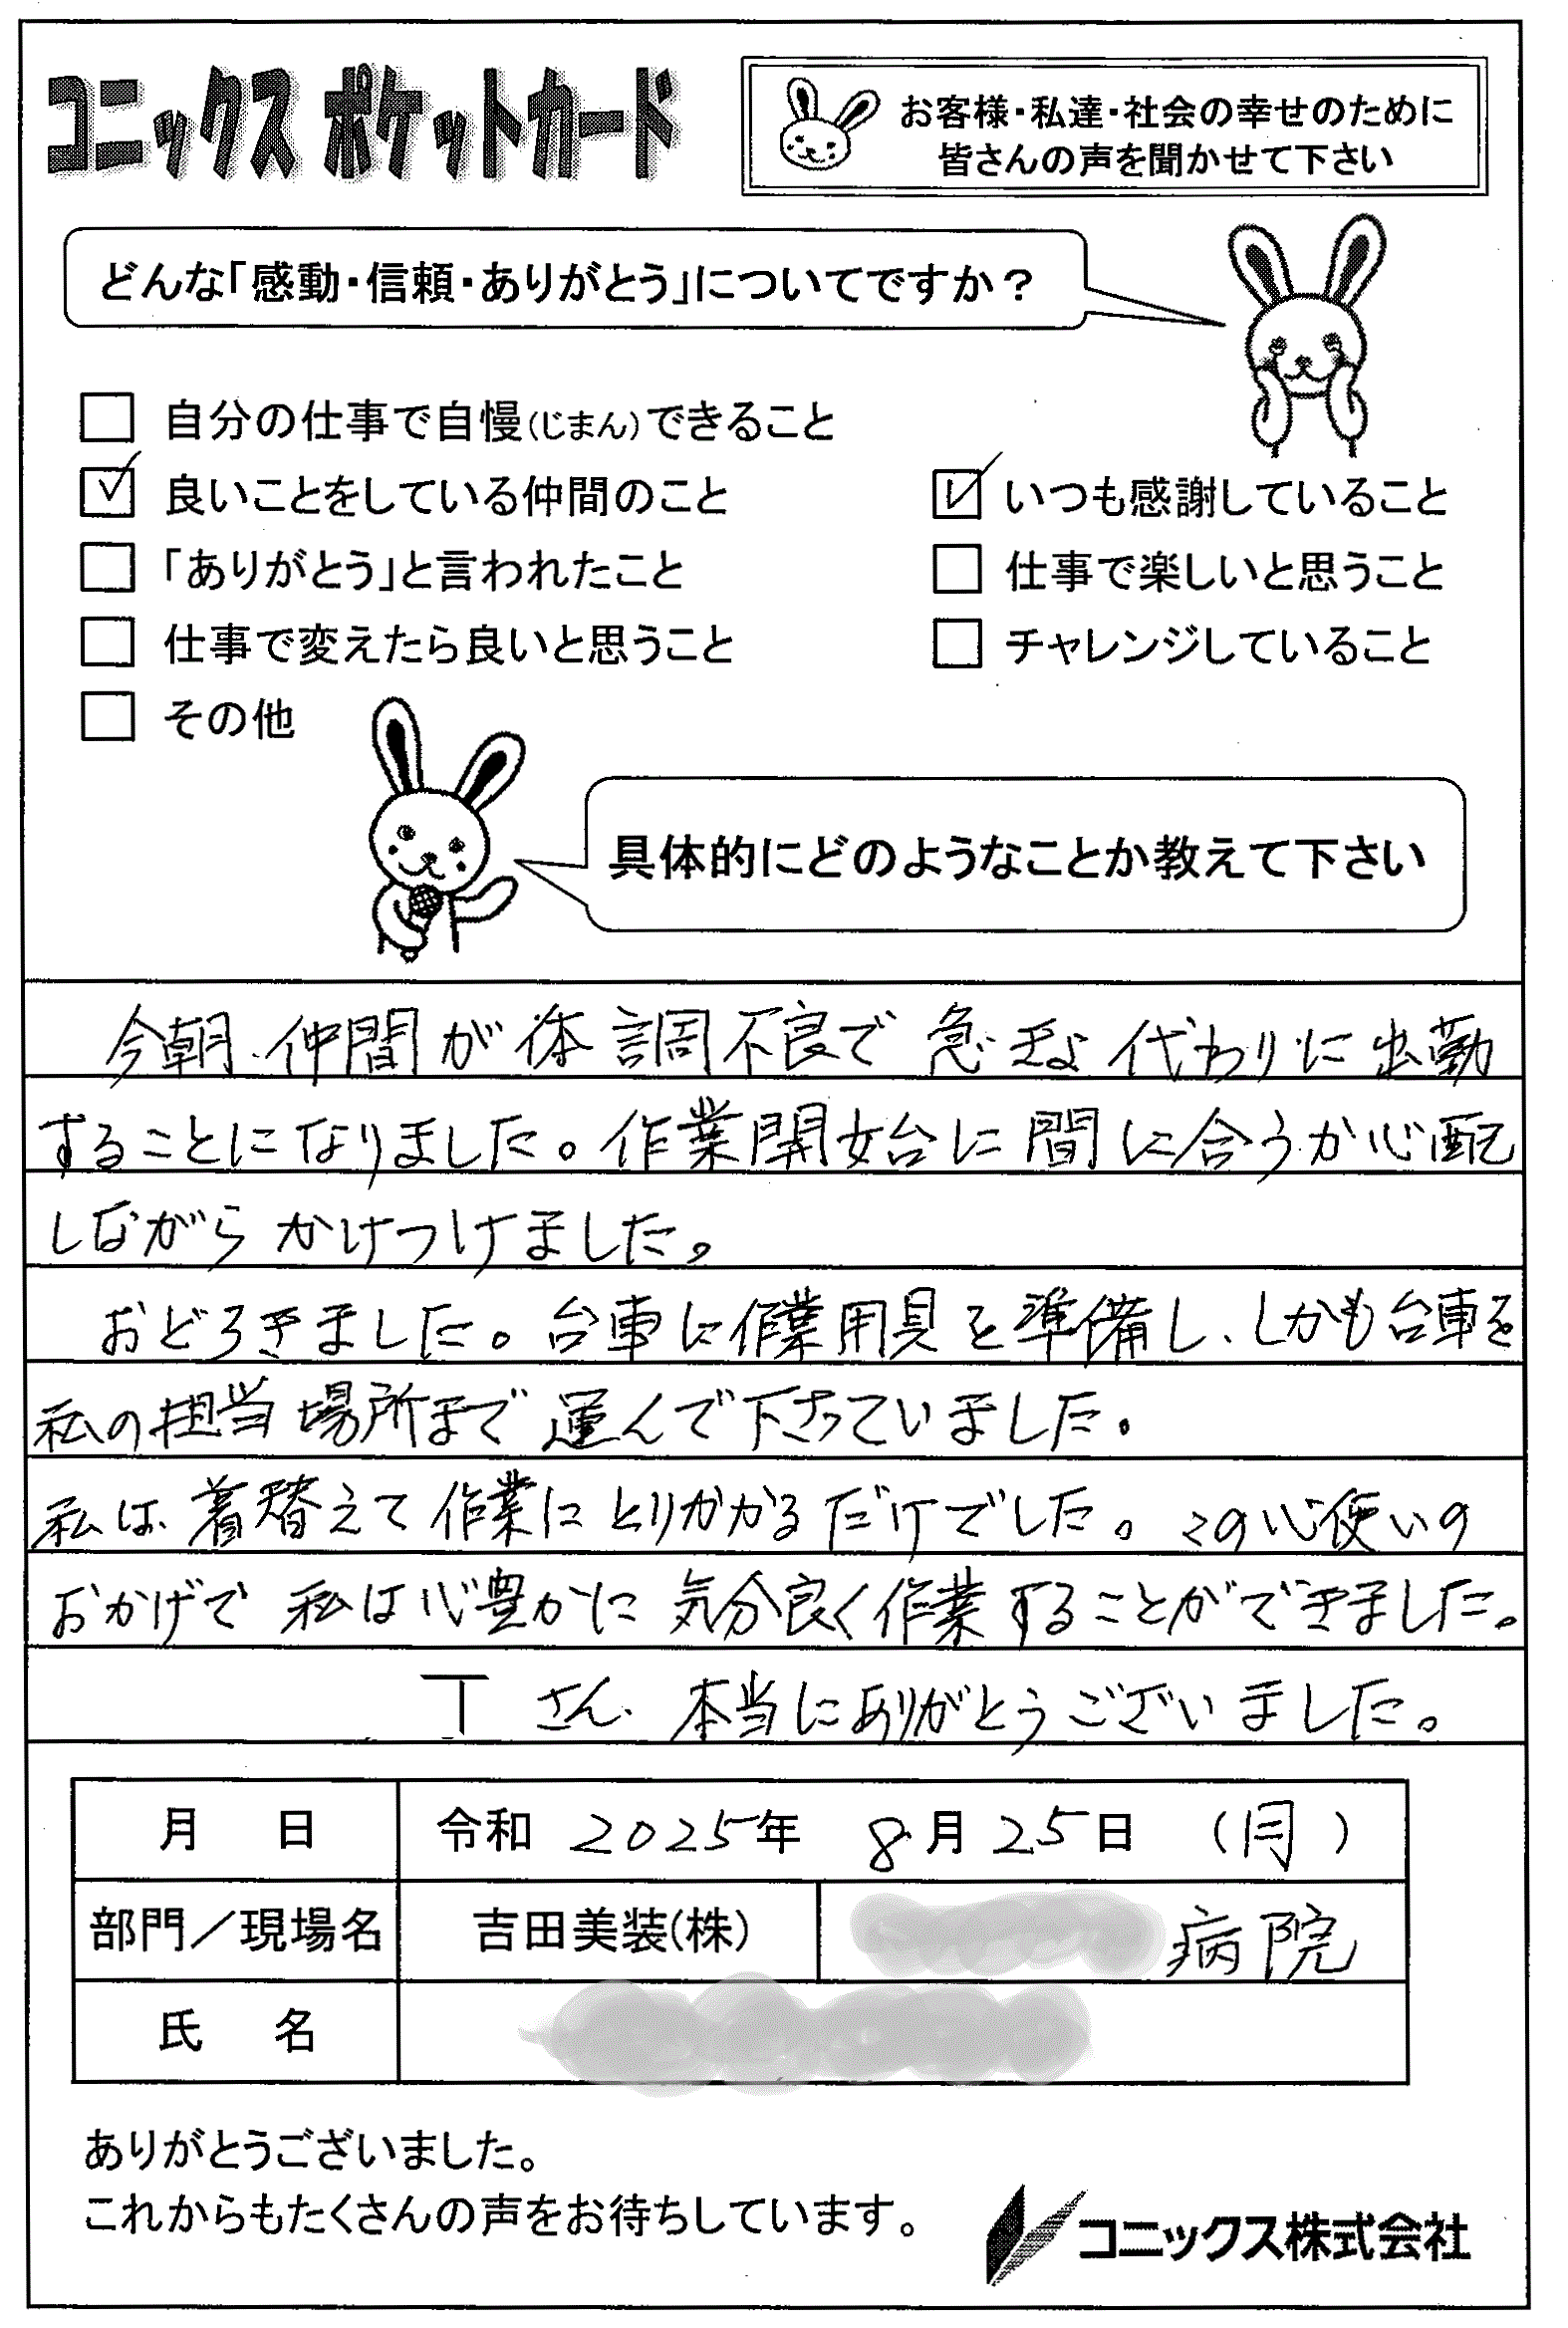 コニックス ポケットカード
お客様・私達・社会の幸せのために
皆さんの声を聞かせて下さい
どんな「感動・信頼・ありがとう」についてですか？
自分の仕事で自慢(じまん)できること
良いことをしている仲間のこと
いつも感謝していること
「ありがとう」と言われたこと
仕事で楽しいと思うこと
仕事で変えたら良いと思うこと
チャレンジしていること
その他
具体的にどのようなことか教えて下さい
今朝、仲間が体調不良で急きょ代わりに出勤
することになりました。作業開始に間に合うか心配
しながらかけつけました。
おどろきました。台車に作業用具を準備し、しかも台車を
私の担当場所まで運んで下さっていました。
私は、着替えて作業にとりかかるだけでした。この心使いの
おかげで私は心豊かに気分良く作業することができました。
Tさん、本当にありがとうございました。
月 日 令和 2025年 8月25日 (月)
部門／現場名 吉田美装(株) 病院
氏 名
ありがとうございました。
これからもたくさんの声をお待ちしています。
コニックス株式会社